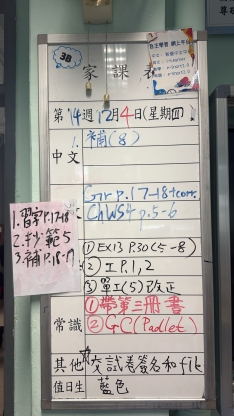 3B
家課表
自主學習 網上平台
第14週12月4日(星期四)
中文
1. 補(8)
Gr P.17-18+corr.
Ch WS4 p.5-6
1. 習字P.17-18
2. 抄範5
3. 補P.18-19
① EX13 P.30(5-8)
② 工P.1,2
③ 單工(5)改正
常識
①帶第三冊書
② GC(Padlet)
其他
交試卷簽名和file
值日生
藍色